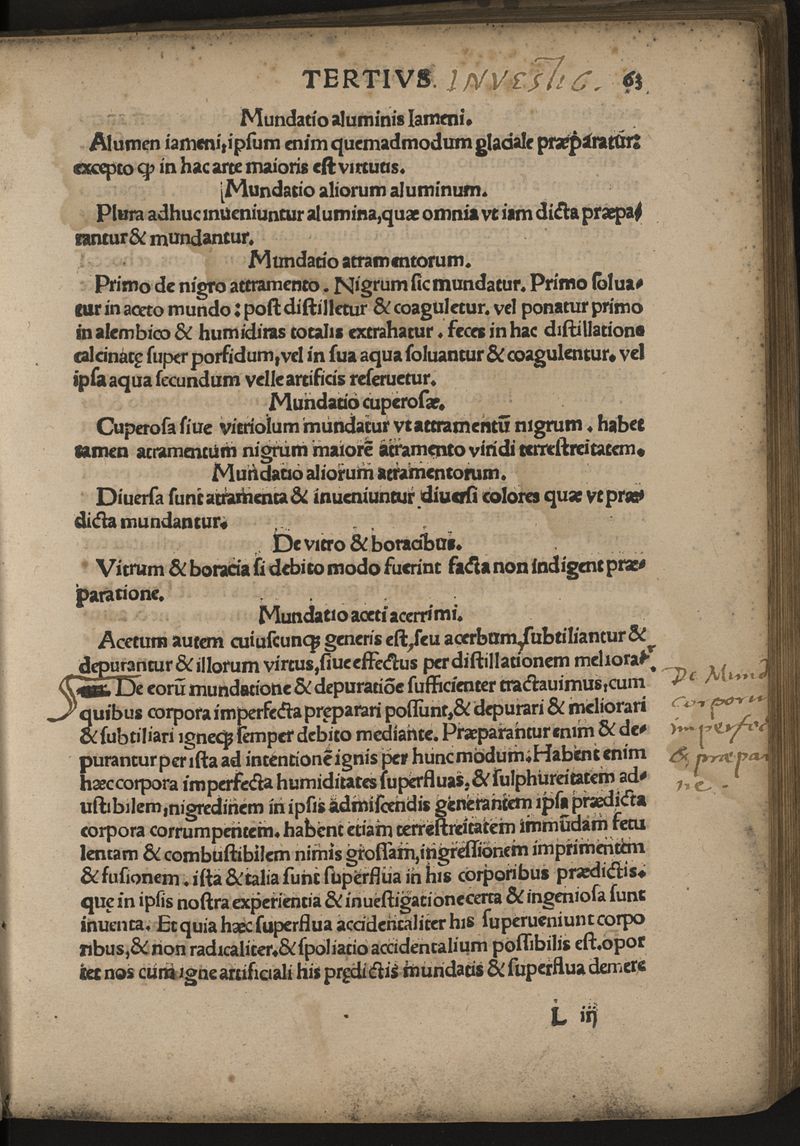 TERTIVS. INVESTIG. 63
Mundatio aluminis Iameni.
Alumen iameni,ipſum enim quemadmodum glaciale præparatur:
excepto ꝙ in hac arte maioris eſt virtutis.
Mundatio aliorum aluminum.
Plura adhuc inueniuntur alumina,quæ omnia vt iam dicta præpa/
rantur & mundantur.
Mundatio atramentorum.
Primo de nigro attramento . Nigrum ſic mundatur. Primo ſolua/
tur in aceto mundo : poſt diſtilletur & coaguletur. vel ponatur primo
in alembico & humiditas totalis extrahatur . feces in hac diſtillatione
calcinatę ſuper porfidum,vel in ſua aqua ſoluantur & coagulentur. vel
ipſa aqua ſecundum velle artificis reſeruetur.
Mundatio cuperoſæ.
Cuperoſa ſiue vitriolum mundatur vt attramentū nigrum . habet
tamen atramentum nigrum maiorē atramento viridi terreſtreitatem.
Mundatio aliorum atramentorum.
Diuerſa ſunt atramenta & inueniuntur diuerſi colores quæ vt præ/
dicta mundantur.
De vitro & boracibus.
Vitrum & boracia ſi debito modo fuerint facta non indigent præ/
paratione.
Mundatio aceti acerrimi.
Acetum autem cuiuſcunqꝫ generis eſt,ſeu acerbum,ſubtiliantur &
depurantur & illorum virtus,ſiue effectus per diſtillationem meliora/
De eorū mundatione & depuratiōe ſufficienter tractauimus,cum
quibus corpora imperfecta pręparari poſſunt,& depurari & meliorari
& ſubtiliari igneqꝫ ſemper debito mediante. Præparantur enim & de/
purantur per iſta ad intentionē ignis per hunc modum. Habent enim
hæc corpora imperfecta humiditates ſuperfluas, & ſulphureitatem ad/
uſtibilem,nigredinem in ipſis admiſcendis generantem ipſa prædicta
corpora corrumpentem. habent etiam terreſtreitatem immūdam fetu
lentam & combuſtibilem nimis groſſam,ingreſſionem imprimentem
& fuſionem . iſta & talia ſunt ſuperflua in his corporibus prædictis.
quę in ipſis noſtra experientia & inueſtigatione certa & ingenioſa ſunt
inuenta. Et quia hæc ſuperflua accidentaliter his ſuperueniunt corpo
ribus,& non radicaliter,& ſpoliatio accidentalium poſſibilis eſt.opor
tet nos cum igne artificiali his prędictis mundatis & ſuperflua demere
L iij
De Mund
Corporu
imperfec
& præpar
ne.